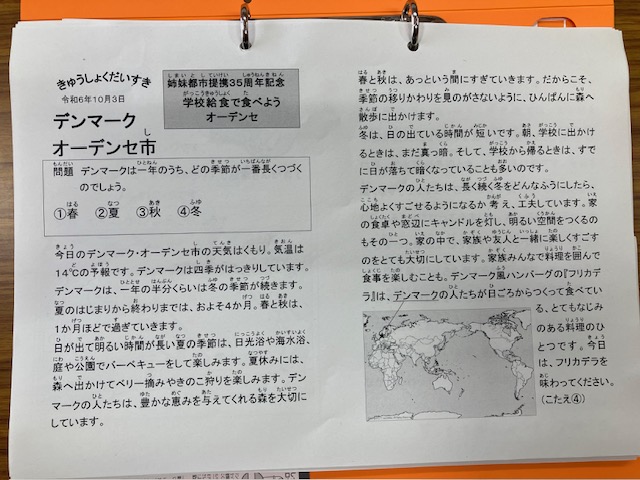 きゅうしょくだいすき
令和6年10月3日
姉妹都市提携35周年記念
学校給食で食べよう
オーデンセ
デンマーク
オーデンセ市
問題 デンマークは一年のうち、どの季節が一番長くつづく
のでしょう。
①春 ②夏 ③秋 ④冬
今日のデンマーク・オーデンセ市の天気はくもり。気温は
14℃の予報です。デンマークは四季がはっきりしています。
デンマークは、一年の半分くらいは冬の季節が続きます。
夏のはじまりから終わりまでは、およそ4か月。春と秋は、
1か月ほどで過ぎていきます。
日が出て明るい時間が長い夏の季節は、日光浴や海水浴、
庭や公園でバーベキューをして楽しみます。夏休みには、
森へ出かけてベリー摘みやきのこ狩りを楽しみます。デン
マークの人たちは、豊かな恵みを与えてくれる森を大切に
しています。
春と秋は、あっという間にすぎていきます。だからこそ、
季節の移りかわりを見のがさないように、ひんぱんに森へ
散歩に出かけます。
冬は、日の出ている時間が短いです。朝、学校に出かけ
るときは、まだ真っ暗。そして、学校から帰るときは、すで
に日が落ちて暗くなっていることも多いのです。
デンマークの人たちは、長く続く冬をどんなふうにしたら、
心地よくすごせるようになるか考え、工夫しています。家
の食卓や窓辺にキャンドルを灯し、明るい空間をつくるの
もその一つ。家の中で、家族や友人と一緒に楽しくすごす
のをとても大切にしています。家族みんなで料理を囲んで
食事を楽しむことも。デンマーク風ハンバーグの『フリカデ
ラ』は、デンマークの人たちが日ごろからつくって食べてい
る、とてもなじみ
のある料理のひ
とつです。今日
は、フリカデラを
味わってください。
(こたえ④)